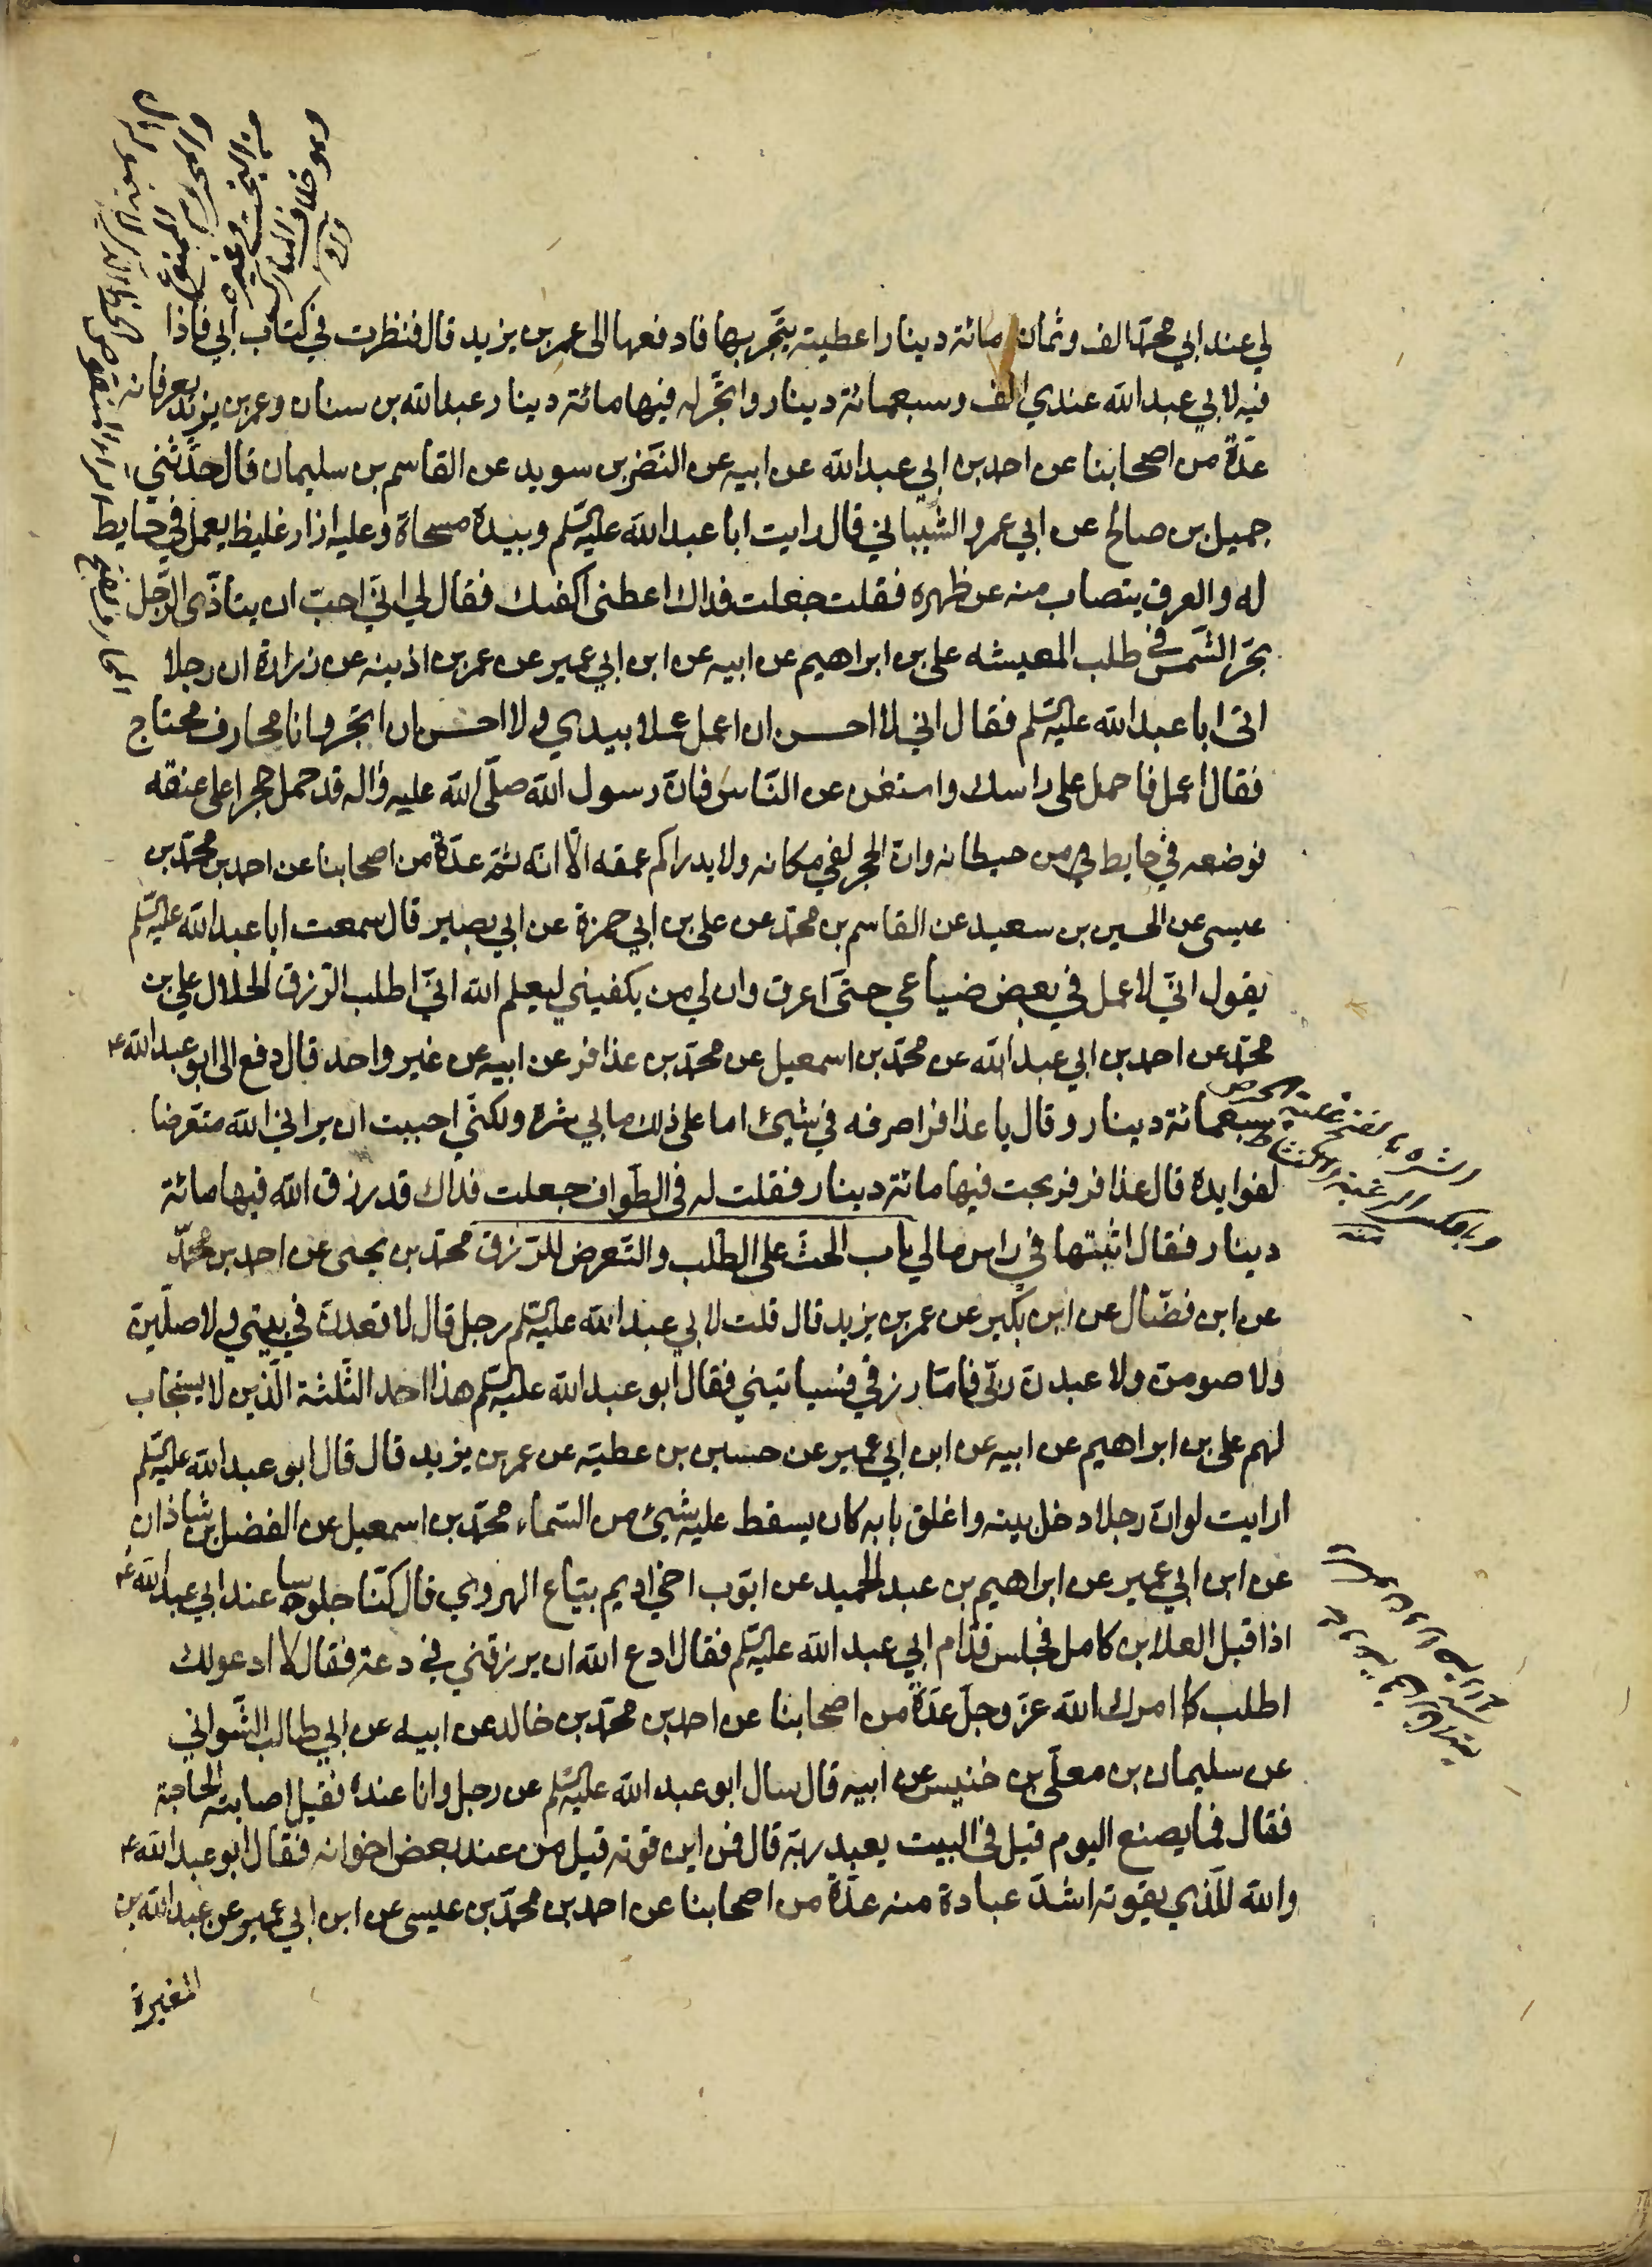 لي عند ابي محمد الف وثمان مائة دينار اعطيته يتجر بها فادفعها الى عمر بن يزيد قال فنظرت في كتاب ابي فاذا
فيه لابي عبد الله عندي الف وسبعمائة دينار واتجر له فيها مائة دينار عبد الله بن سنان وعمر بن يزيد يعرفانه
عدة من اصحابنا عن احمد بن ابي عبد الله عن ابيه عن النضر بن سويد عن القاسم بن سليمان قال حدثني
جميل بن صالح عن ابي عمرو الشيباني قال رايت ابا عبد الله عليه السلم وبيده مسحاة وعليه ازار غليظ يعمل في حايط
له والعرق يتصاب منه عن ظهره فقلت جعلت فداك اعطني اكفك فقال لي اني احب ان يتاذى الرجل
بحر الشمس في طلب المعيشه علي بن ابراهيم عن ابيه عن ابن ابي عمير عن عمر بن اذينه عن زرارة ان رجلا
اتى ابا عبد الله عليه السلم فقال اني لا احسن ان اعمل عملا بيدي ولا احسن ان اتجر وانا محارف محتاج
فقال اعمل فاحمل على راسك واستغن عن الناس فان رسول الله صلى الله عليه واله قد حمل حجرا على عنقه
فوضعه في حايط له من حيطانه وان الحجر لفي مكانه ولا يدرا كم عمقه الا انه ثمة عدة من اصحابنا عن احمد بن محمد بن
عيسى عن الحسين بن سعيد عن القاسم بن محمد عن علي بن ابي حمزة عن ابي بصير قال سمعت ابا عبد الله عليه السلم
يقول اني لاعمل في بعض ضياعي حتى اعرق وان لي من يكفيني ليعلم الله اني اطلب الرزق الحلال علي بن
محمد عن احمد بن ابي عبد الله عن محمد بن اسمعيل عن محمد بن عذافر عن ابيه عن غير واحد قال دفع الى ابو عبد الله ع
سبعمائة دينار وقال يا عذافر اصرفه في شيئ اما على ذلك ما بي شره ولكني احببت ان يراني الله متعرضا
لفوايده قال عذافر فربحت فيها مائة دينار فقلت له في الطواف جعلت فداك قد رزق الله فيها مائة
دينار فقال اثبتها في راس مالي باب الحث على الطلب والتعرض للرزق محمد بن يحيى عن احمد بن محمد
عن ابن فضال عن ابن بكير عن عمر بن يزيد قال قلت لابي عبد الله عليه السلم رجل قال لا قعدن في بيتي ولا صلين
ولا صومن ولا عبدن ربي فاما رزقي فسياتيني فقال ابو عبد الله عليه السلم هذا احد الثلثة الذين لا يستجاب
لهم علي بن ابراهيم عن ابيه عن ابن ابي عمير عن حسين بن عطية عن عمر بن يزيد قال قال ابو عبد الله عليه السلم
ارايت لو ان رجلا دخل بيته واغلق بابه كان يسقط عليه شيئ من السماء محمد بن اسمعيل عن الفضل بن شاذان
عن ابن ابي عمير عن ابراهيم بن عبد الحميد عن ايوب اخي اديم بياع الهروي قال كنا جلوسا عند ابي عبد الله ع
اذا قبل العلا بن كامل فجلس قدام ابي عبد الله عليه السلم فقال ادع الله ان يرزقني في دعة فقال لا ادعو لك
اطلب كما امرك الله عز وجل عدة من اصحابنا عن احمد بن محمد بن خالد عن ابيه عن ابي طالب الشعراني
عن سليمان بن معلى بن خنيس عن ابيه قال سال ابو عبد الله عليه السلم عن رجل وانا عنده فقيل اصابته الحاجة
فقال فما يصنع اليوم قيل في البيت يعبد ربه قال فمن اين قوته قيل من عند بعض اخوانه فقال ابو عبد الله ع
والله للذي يقوته اشد عبادة منه عدة من اصحابنا عن احمد بن محمد بن عيسى عن ابن ابي عمير عن عبد الله بن
المغيرة